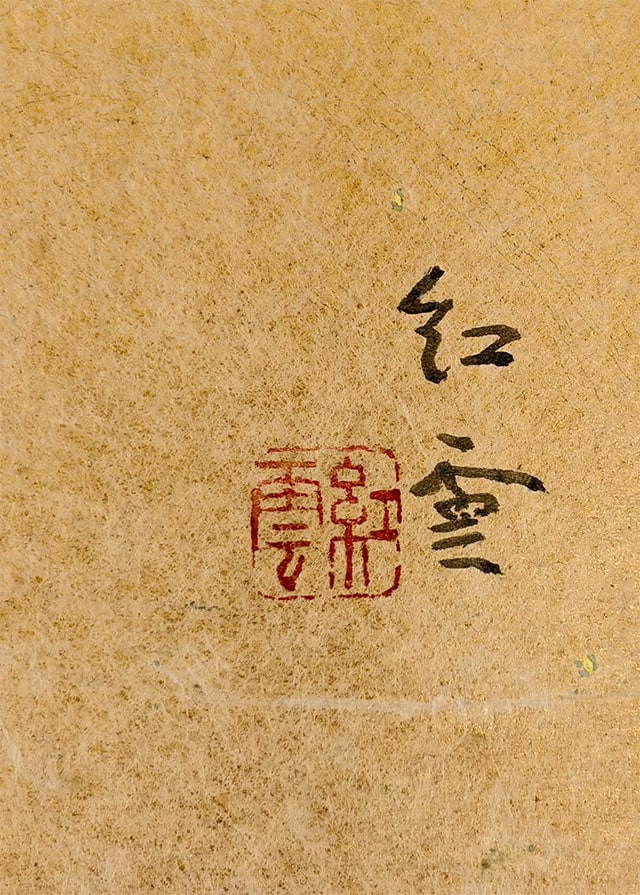 紅雲
紅雲